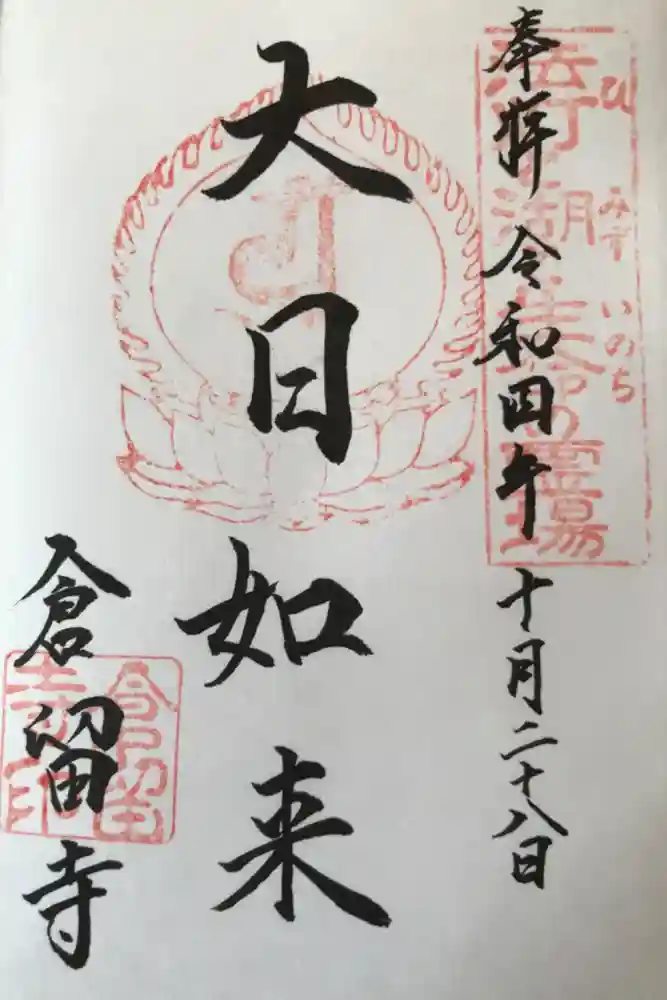 奉拝 令和四年 十月二十八日
大日如来
倉留寺
ひ みず いのち
湖 生命の霊場
倉留寺印